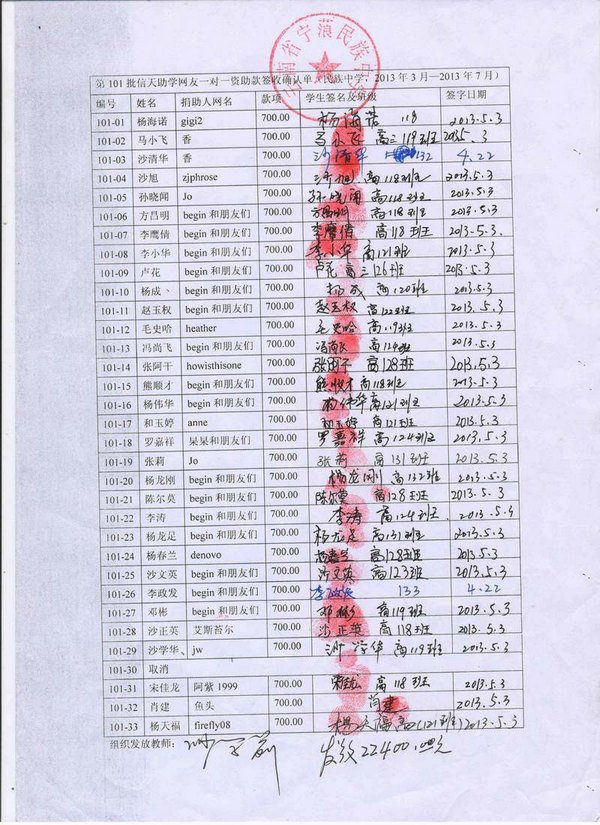 云南省宁蒗民族中学
第 101 批信天助学网友一对一资助款签收确认单（民族中学，2013 年 3 月—2013 年 7 月）
编号 姓名 捐助人网名 款项 学生签名及班级 签字日期
101-01 杨海诺 gigi2 700.00 杨海诺 118 2013.5.3
101-02 马小飞 香 700.00 马小飞 高三119班 2013.5.3
101-03 沙清华 香 700.00 沙清华 132 4.22
101-04 沙旭 zjphrose 700.00 沙旭 高118班 2013.5.3
101-05 孙晓闻 Jo 700.00 孙晓闻 高118班 2013.5.3
101-06 方昌明 begin 和朋友们 700.00 方昌明 高118班 2013.5.3
101-07 李鹰倩 begin 和朋友们 700.00 李鹰倩 高118班 2013.5.3
101-08 李小华 begin 和朋友们 700.00 李小华 高121班 2013.5.3
101-09 卢花 begin 和朋友们 700.00 卢花 高三126班 2013.5.3
101-10 杨成、 begin 和朋友们 700.00 杨成 高120班 2013.5.3
101-11 赵玉权 begin 和朋友们 700.00 赵玉权 高122班 2013.5.3
101-12 毛史哈 heather 700.00 毛史哈 高119班 2013.5.3
101-13 冯尚飞 begin 和朋友们 700.00 冯尚飞 高124班 2013.5.3
101-14 张阿干 howisthisone 700.00 张阿干 高128班 2013.5.3
101-15 熊顺才 begin 和朋友们 700.00 熊顺才 高118班 2013.5.3
101-16 杨伟华 begin 和朋友们 700.00 杨伟华 高121班 2013.5.3
101-17 和玉婷 anne 700.00 和玉婷 高121班 2013.5.3
101-18 罗嘉祥 呆呆和朋友们 700.00 罗嘉祥 高124班 2013.5.3
101-19 张莉 Jo 700.00 张莉 高131班 2013.5.3
101-20 杨龙刚 begin 和朋友们 700.00 杨龙刚 高132班 2013.5.3
101-21 陈尔莫 begin 和朋友们 700.00 陈尔莫 高128班 2013.5.3
101-22 李涛 begin 和朋友们 700.00 李涛 高124班 2013.5.3
101-23 杨龙足 begin 和朋友们 700.00 杨龙足 高131班 2013.5.3
101-24 杨春兰 denovo 700.00 杨春兰 高128班 2013.5.3
101-25 沙文英 begin 和朋友们 700.00 沙文英 高123班 2013.5.3
101-26 李政发 begin 和朋友们 700.00 李政发 133 4.22
101-27 邓彬 begin 和朋友们 700.00 邓彬 高119班 2013.5.3
101-28 沙正英 艾斯苔尔 700.00 沙正英 高118班 2013.5.3
101-29 沙学华、 jw 700.00 沙学华 高119班 2013.5.3
101-30 取消
101-31 宋佳龙 阿紫 1999 700.00 高118班 2013.5.3
101-32 肖建 鱼头 700.00 肖建 2013.5.3
101-33 杨天福 firefly08 700.00 杨天福 高121班 2013.5.3
组织发放教师： 发放22400.